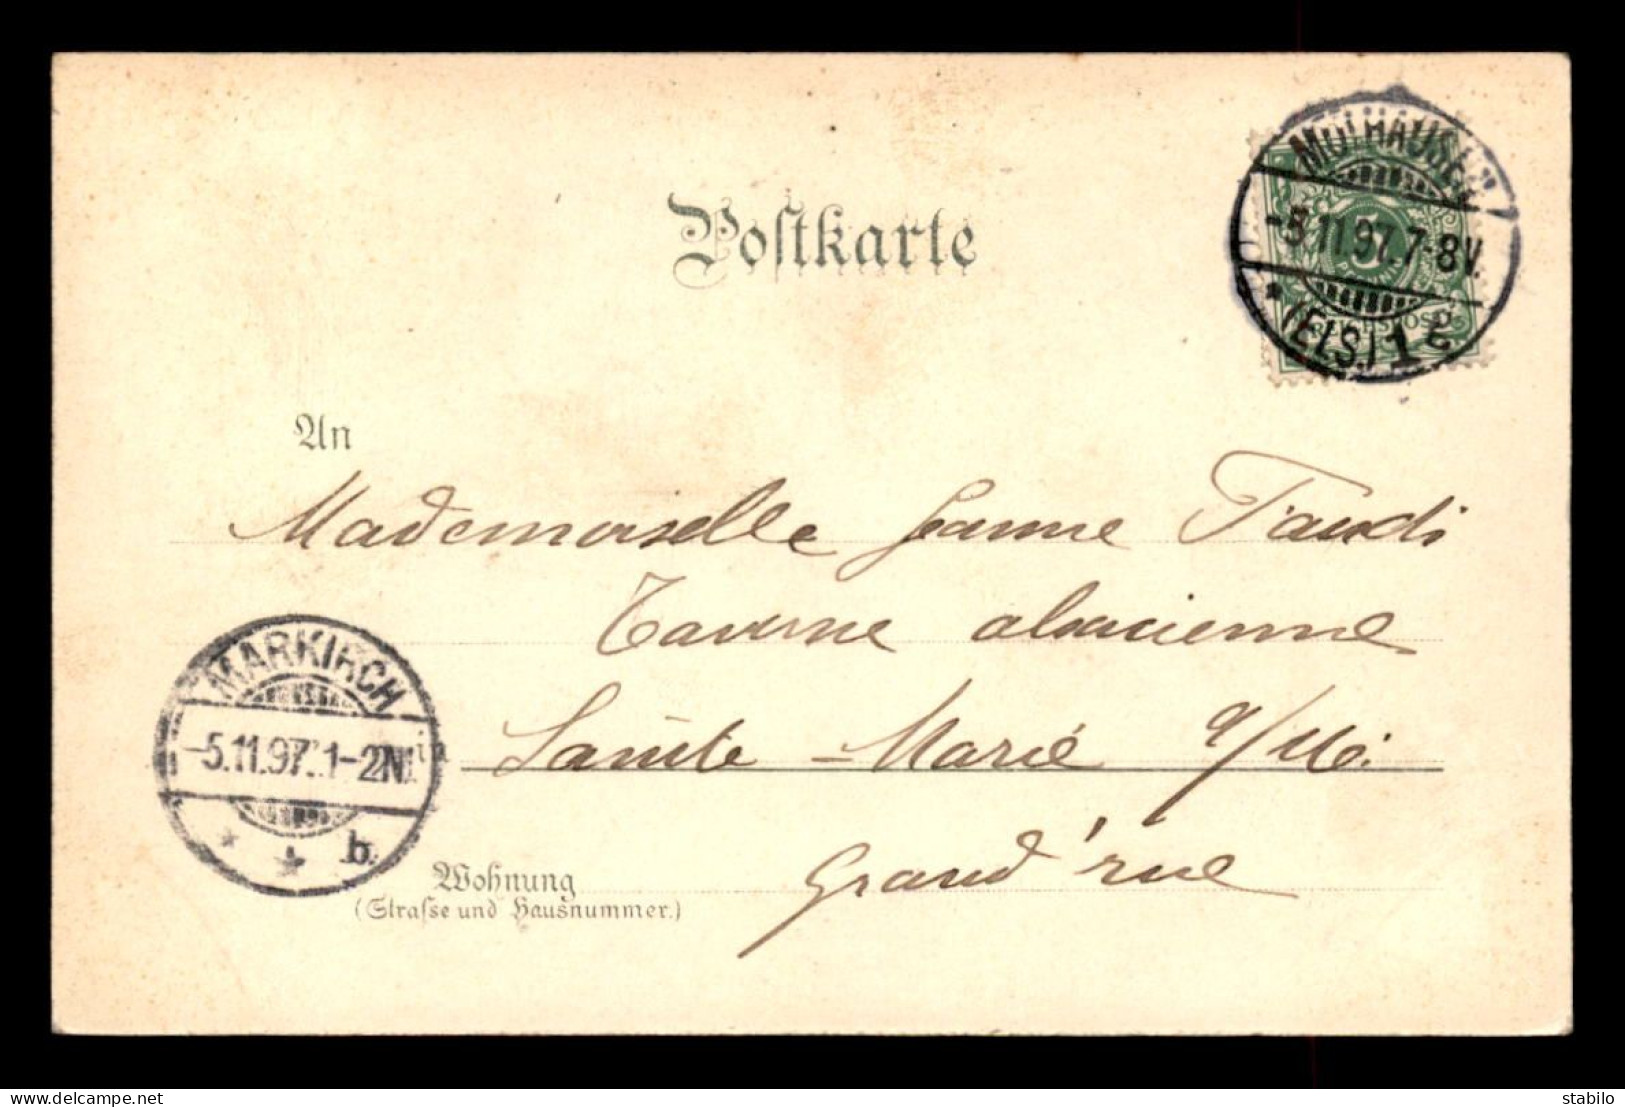 MÜLHAUSEN
-5.11.97.7-8V.
* (ELS.) 1 c
5
Postkarte
An
Mademoiselle Jeanne Taudi
Taverne alsacienne
MARKIRCH
-5.11.97.1-2N.
* * b.
Sainte-Marie a/Me.
Grand'rue
Wohnung
(Strasse und Hausnummer.)
www.delcampe.net
stabilo